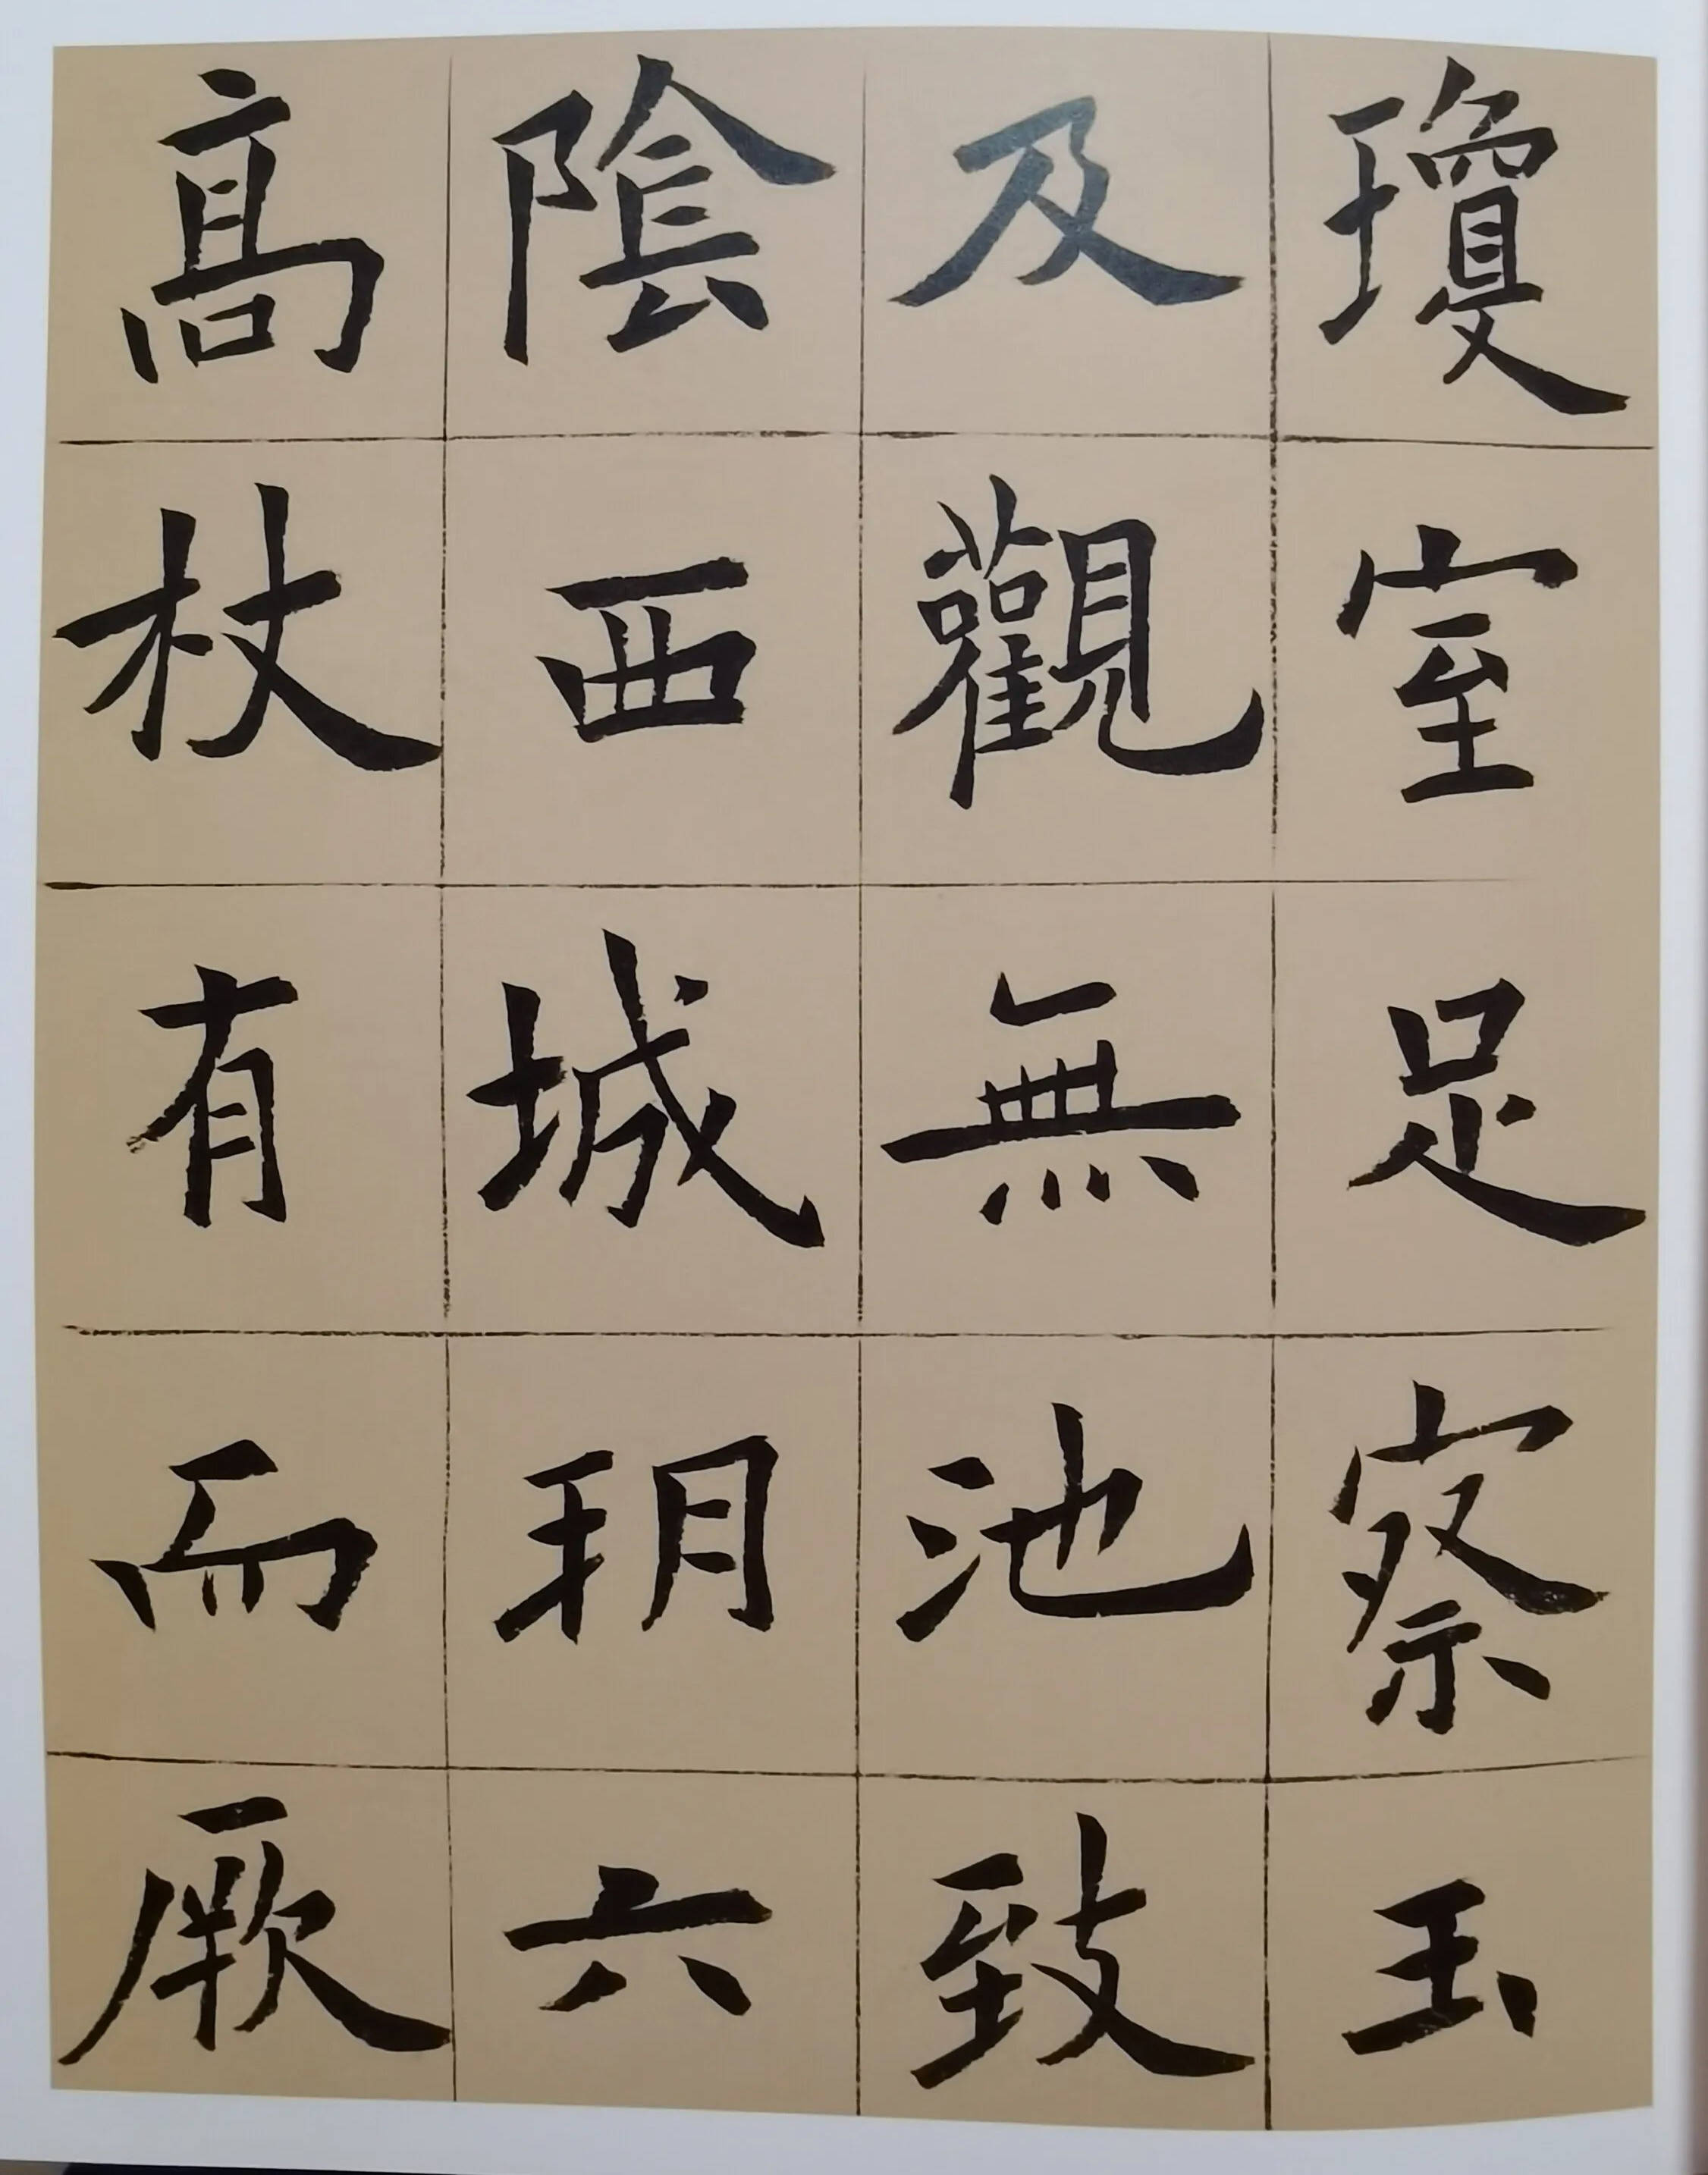 瓊室足察玉
及觀無池致
陰西城玥六
髙杖有而厥